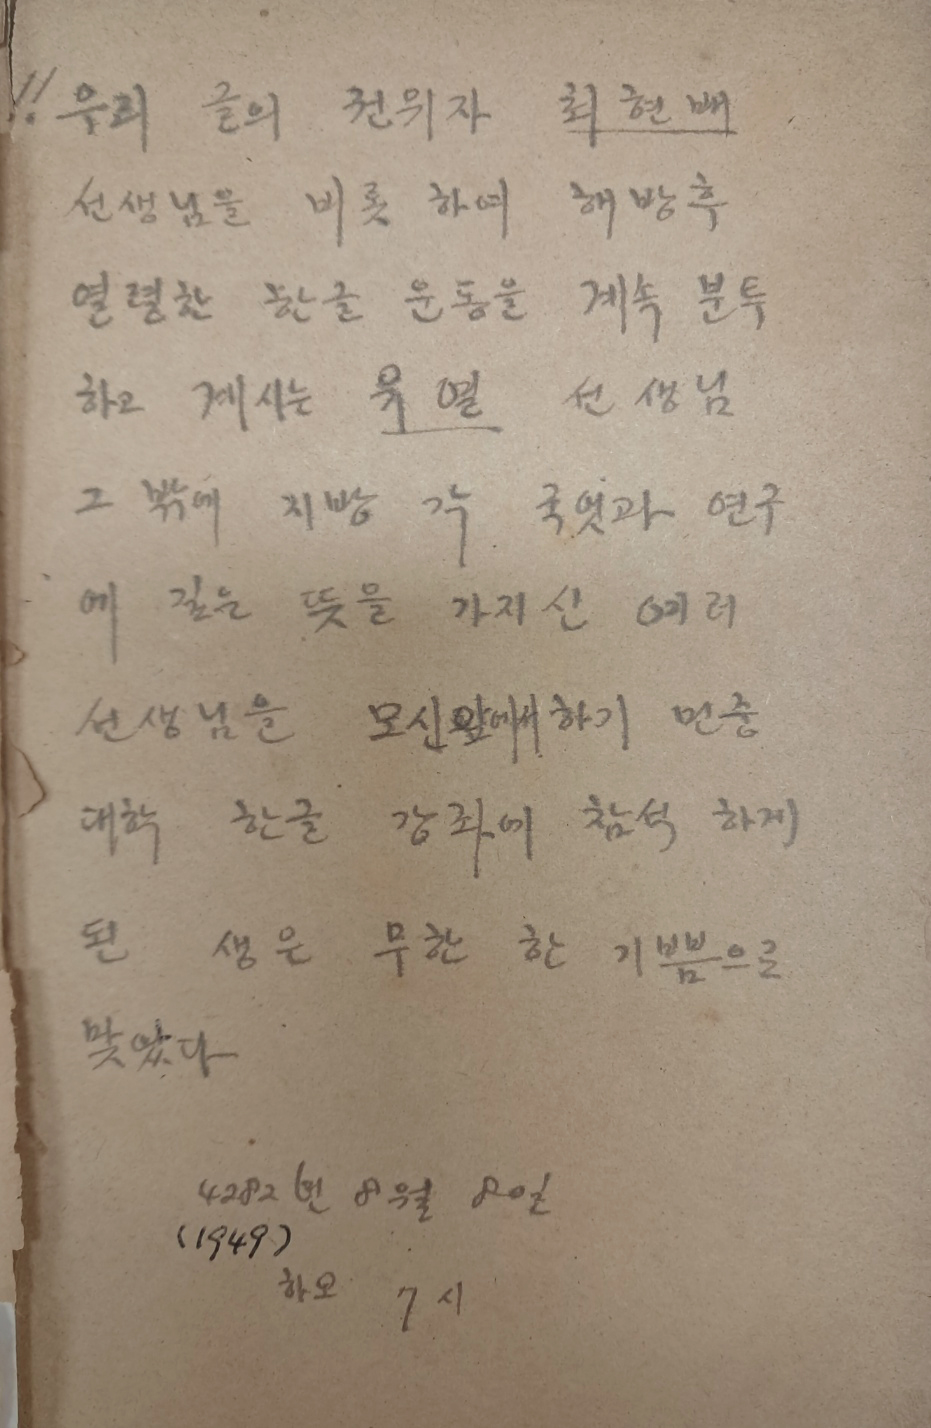 !! 우리 글의 권위자 최현배
선생님을 비롯 하여 해방후
열렬한 한글 운동을 계속 분투
하고 계시는 유열 선생님
그 밖에 지방 각 국엇과 연구
에 깊은 뜻을 가지신 여러
선생님을 모신앞에서 하기 민중
대학 한글 강좌에 참석 하게
된 생은 무한 한 기쁨으로
맞았다
4282년 8월 8일
(1949)
하오 7시